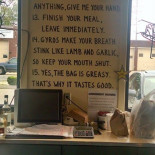 ANYTHING, GIVE ME YOUR NAME
13. FINISH YOUR MEAL,
LEAVE IMMEDIATELY.
14. GYROS MAKE YOUR BREATH
STINK LIKE LAMB AND GARLIC,
SO KEEP YOUR MOUTH SHUT.
15. YES, THE BAG IS GREASY.
THAT'S WHY IT TASTES GOOD.